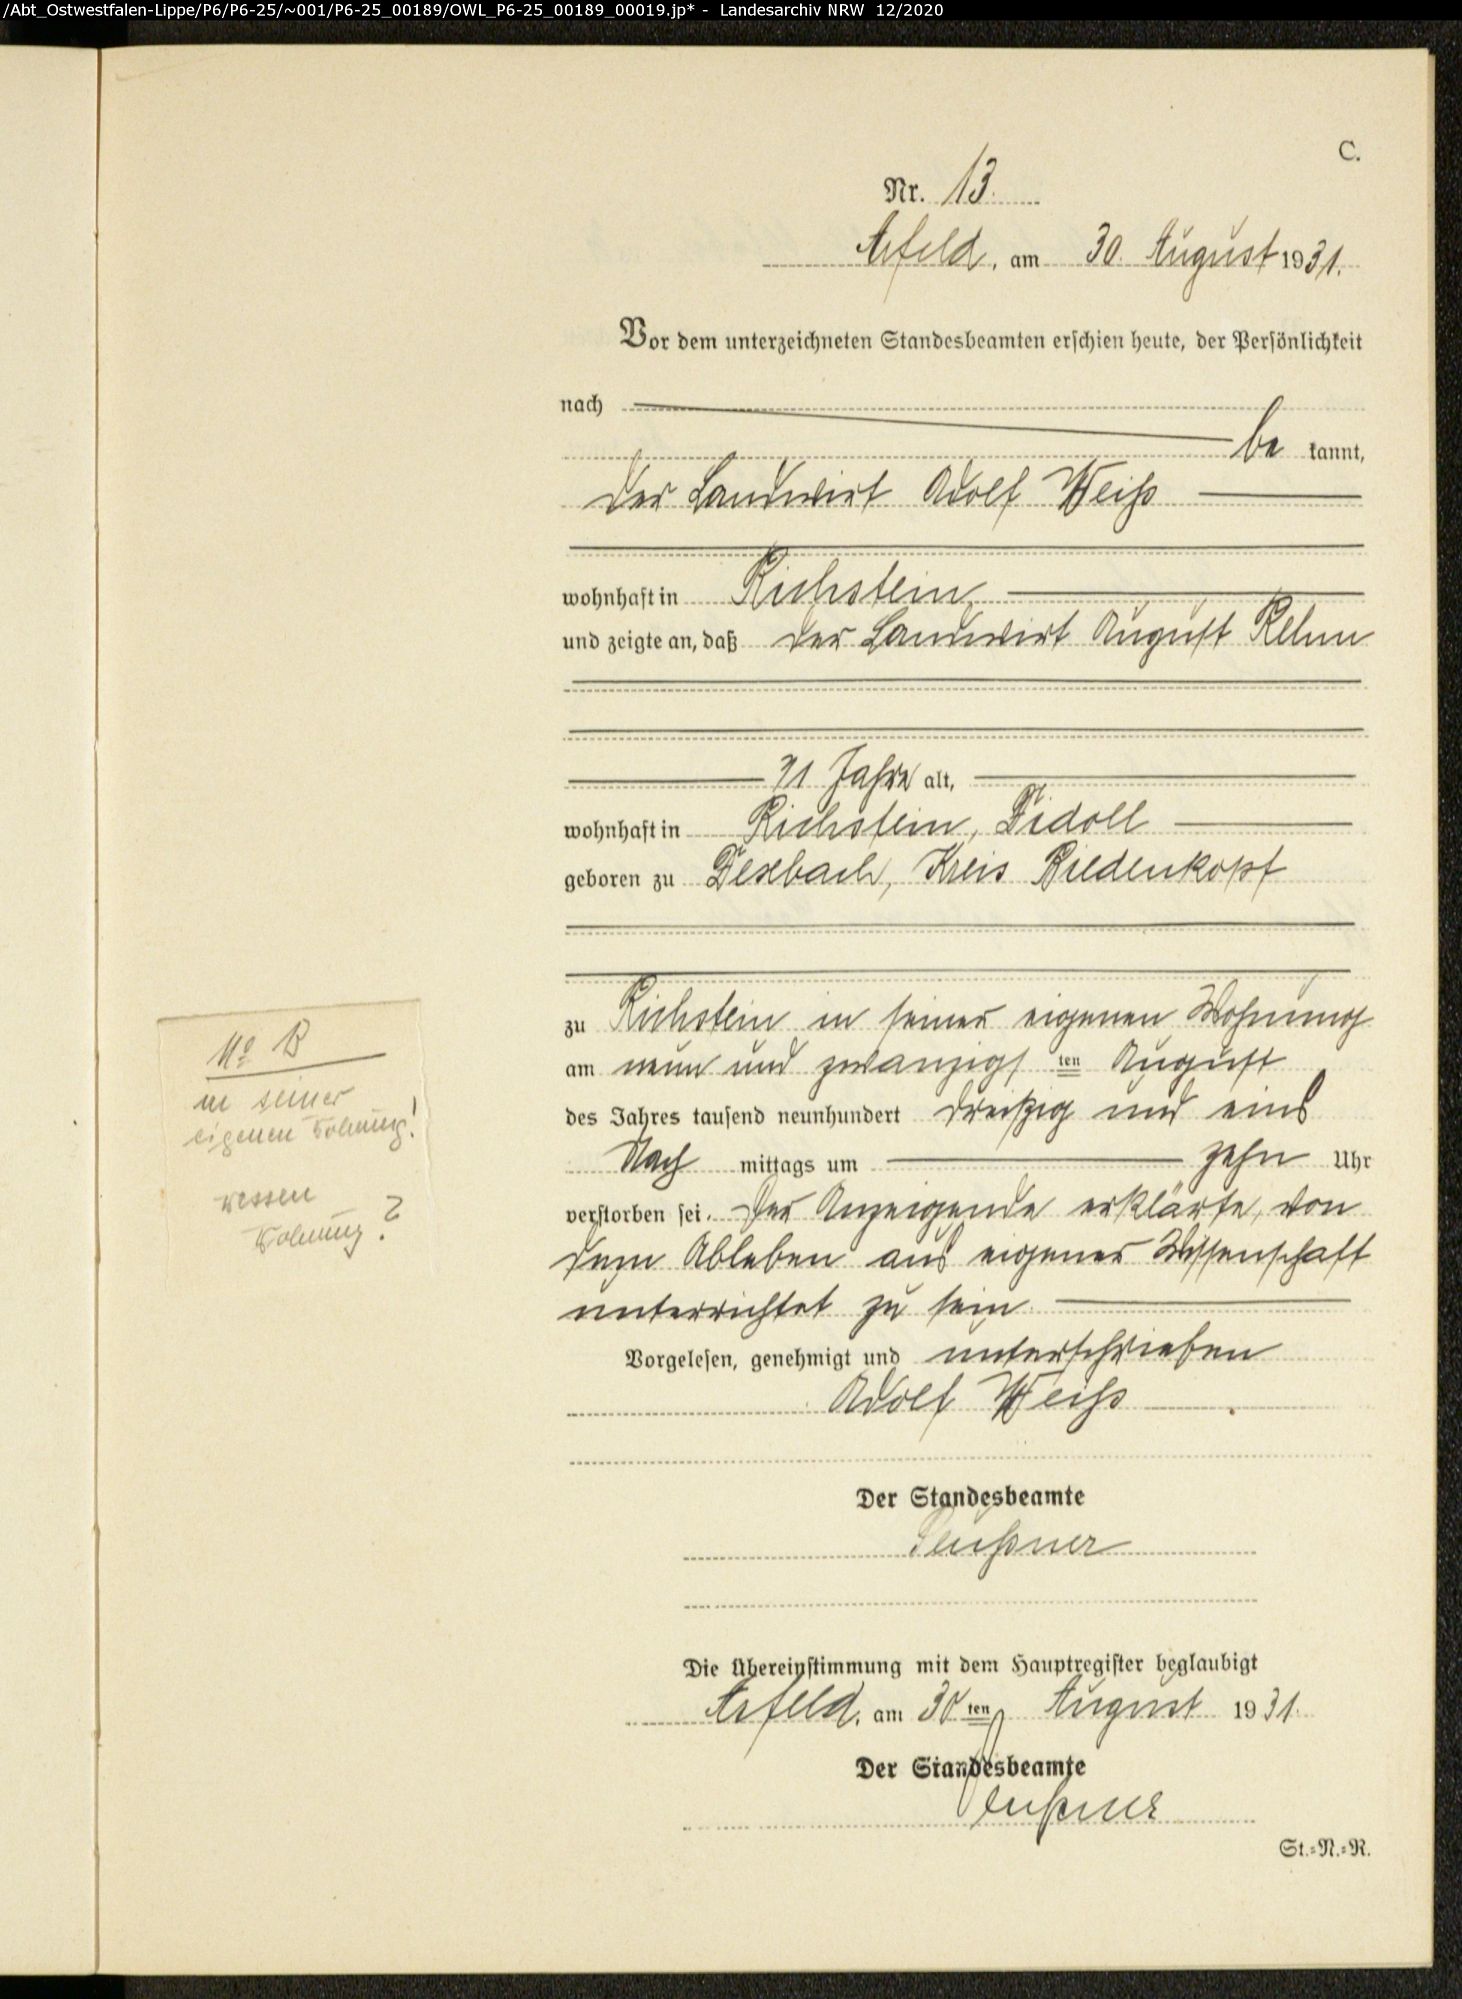 /Abt_Ostwestfalen-Lippe/P6/P6-25/~001/P6-25_00189/OWL_P6-25_00189_00019.jp* - Landesarchiv NRW 12/2020
C.
Nr. 13.
Arfeld, am 30. August 1931.
Vor dem unterzeichneten Standesbeamten erschien heute, der Persönlichkeit
nach
be kannt,
der Landwirt Adolf Weiß
wohnhaft in Richstein,
und zeigte an, daß der Landwirt August Rehm
71 Jahre alt,
wohnhaft in Richstein,
geboren zu Dexbach, Kreis Biedenkopf
zu Richstein in seiner eigenen Wohnung
am neun und zwanzigs ten August
des Jahres tausend neunhundert dreißig und eins
Nach mittags um zehn Uhr
verstorben sei. Der Anzeigende erklärte, von
dem Ableben aus eigener Wissenschaft
unterrichtet zu sein.
Vorgelesen, genehmigt und unterschrieben
Adolf Weiß
Der Standesbeamte
Die Übereinstimmung mit dem Hauptregister beglaubigt
Arfeld, am 30 ten August 1931.
Der Standesbeamte
St.=N.=R.
in seiner
eigenen Wohnung!
wessen
Wohnung?